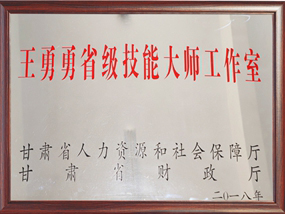 王勇勇省级技能大师工作室
甘肃省人力资源和社会保障厅
甘肃省财政厅
二〇一八年